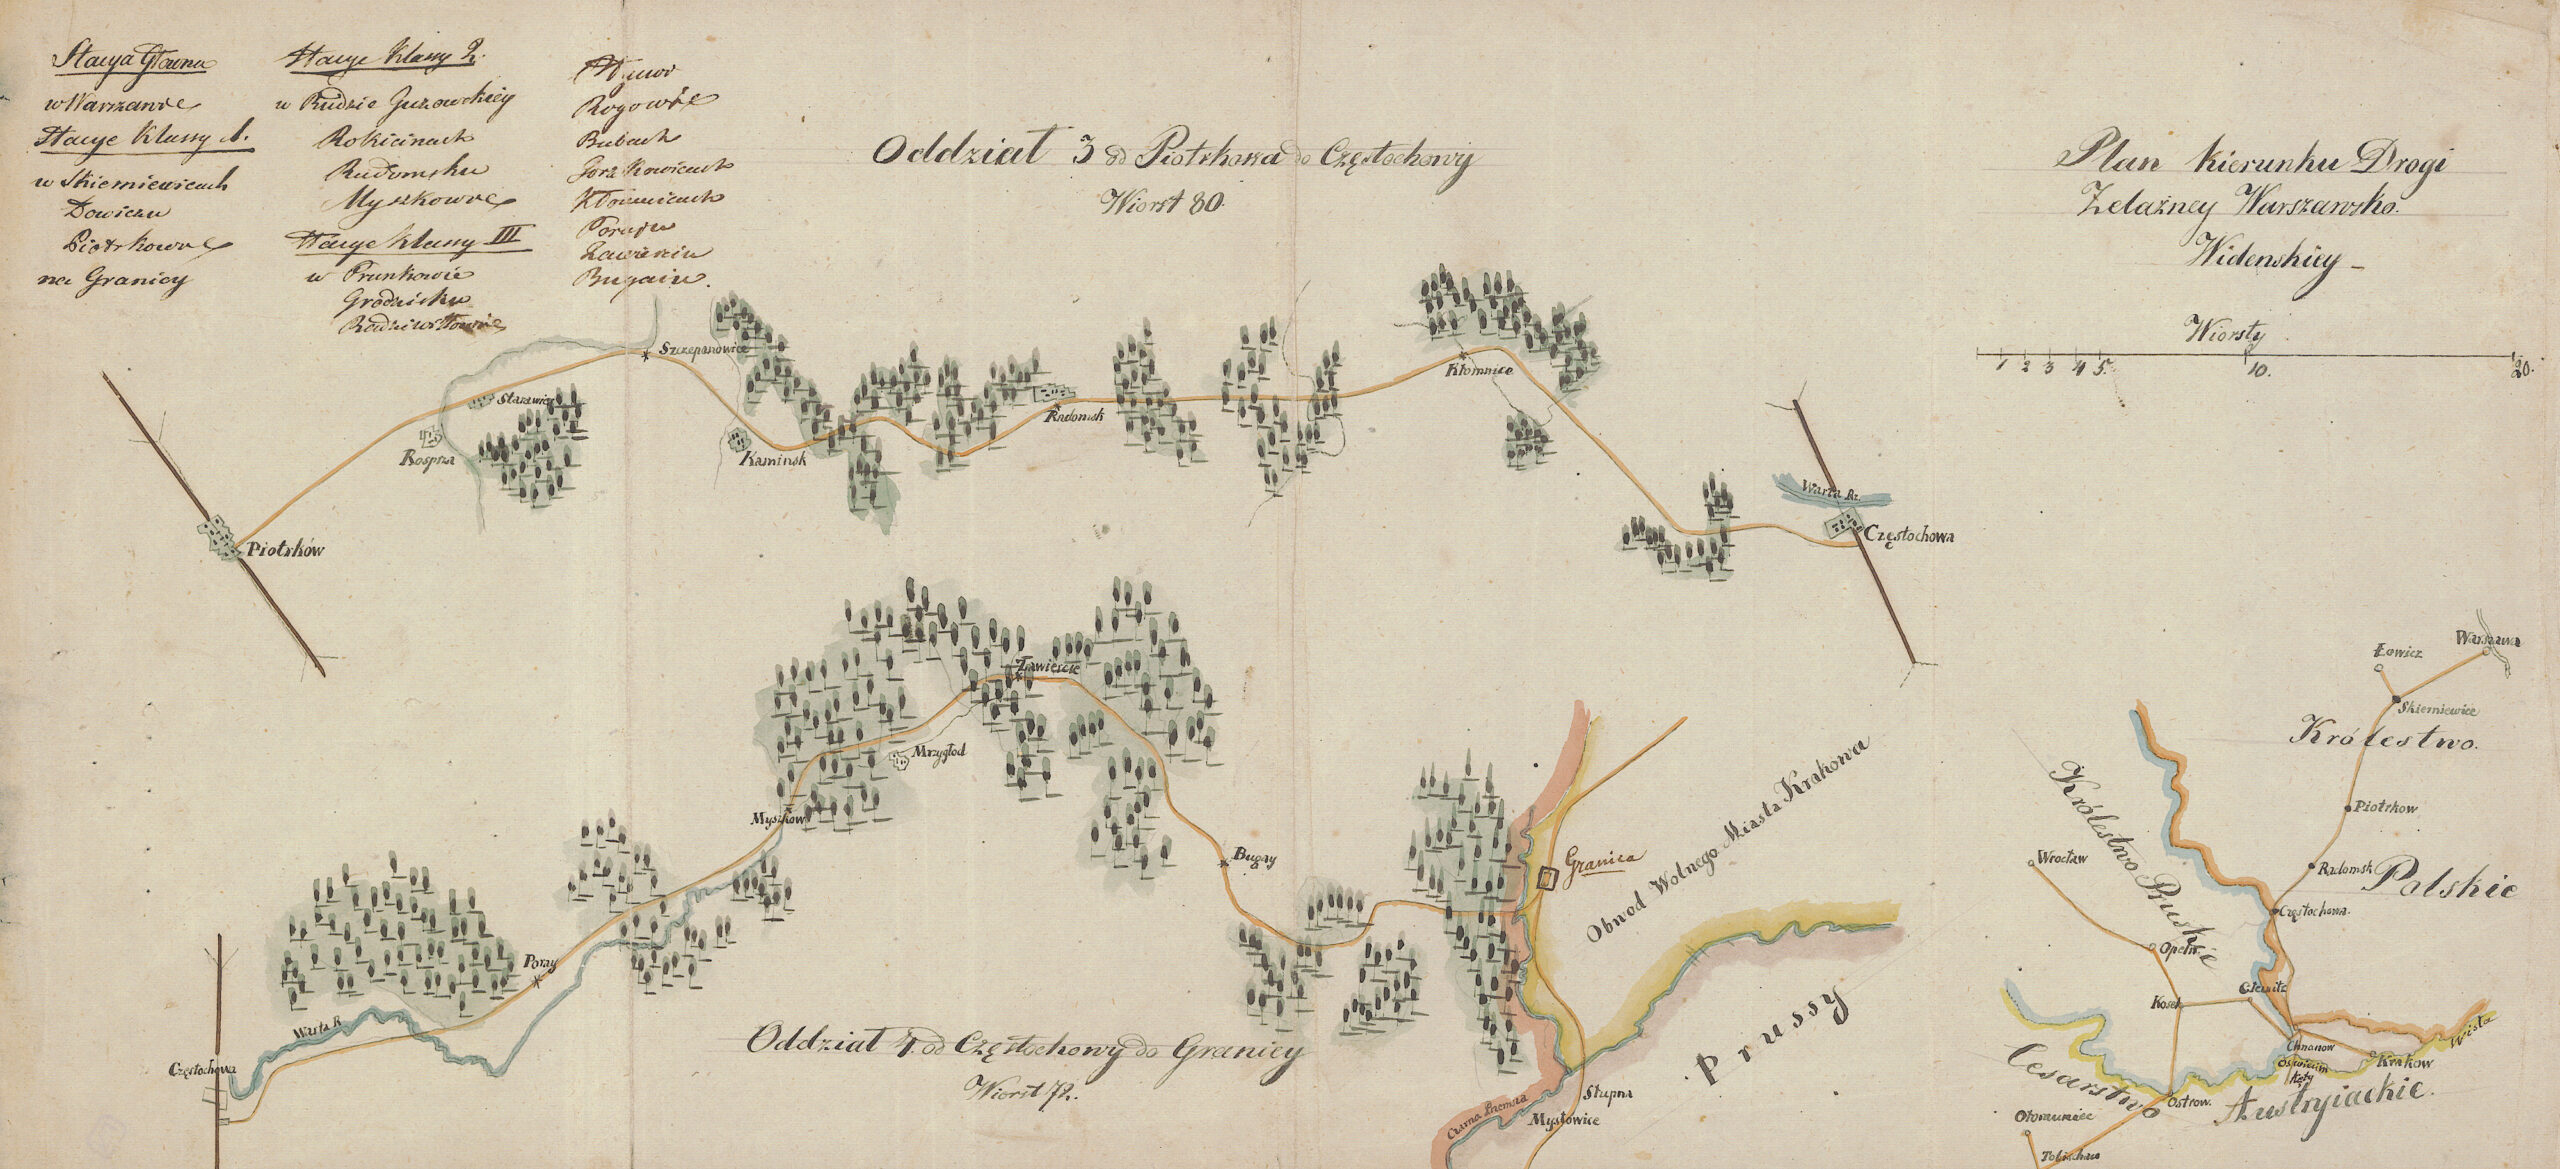 Stacya Główna
w Warszawie
Stacye Klassy 1.
w Skierniewicach
Łowiczu
Piotrkowie
na Granicy
Stacye Klassy 2.
w Rudzie Guzowskiey
Rokicinach
Radomsku
Myszkowie
Stacye Klassy III
w Prunkowie
Grodzisku
Radziwiłłowie
Rogowie
Babach
Gorzkowicach
Kłomnicach
Poraju
Zawierciu
Bugaiu.
Oddział 3 od Piotrkowa do Częstochowy
Wiorst 80.
Plan Kierunku Drogi
Żelaźney Warszawsko.
Widenskiey -
Wiorsty
1 2 3 4 5. 10. 20.
Szczepanowice
Kłomnice
Starawieś
Radomsk
Rosprza
Kaminsk
Warta Rz.
Piotrków
Częstochowa
Zawiercie
Mrzygłod
Myszkow
Bugay
Granica
Obwod Wolnego Miasta Krakowa
Poray
Warta R.
Częstochowa
Oddział 4. od Częstochowy do Granicy
Wiorst 72.
Prussy
Czarna Przemsza
Słupna
Mysłowice
Warszawa
Łowicz
Skierniewice
Królestwo.
Piotrkow
Królestwo Pruskie
Wrocław
Radomsk
Polskie
Częstochowa.
Opeln.
Kosel
Gleiwitz
Wisła
Chrzanow
Oswiecim
Kęty
Krakow
Cesarstwo
Austryiackie.
Ostrow.
Ołomuniec
Tobischau